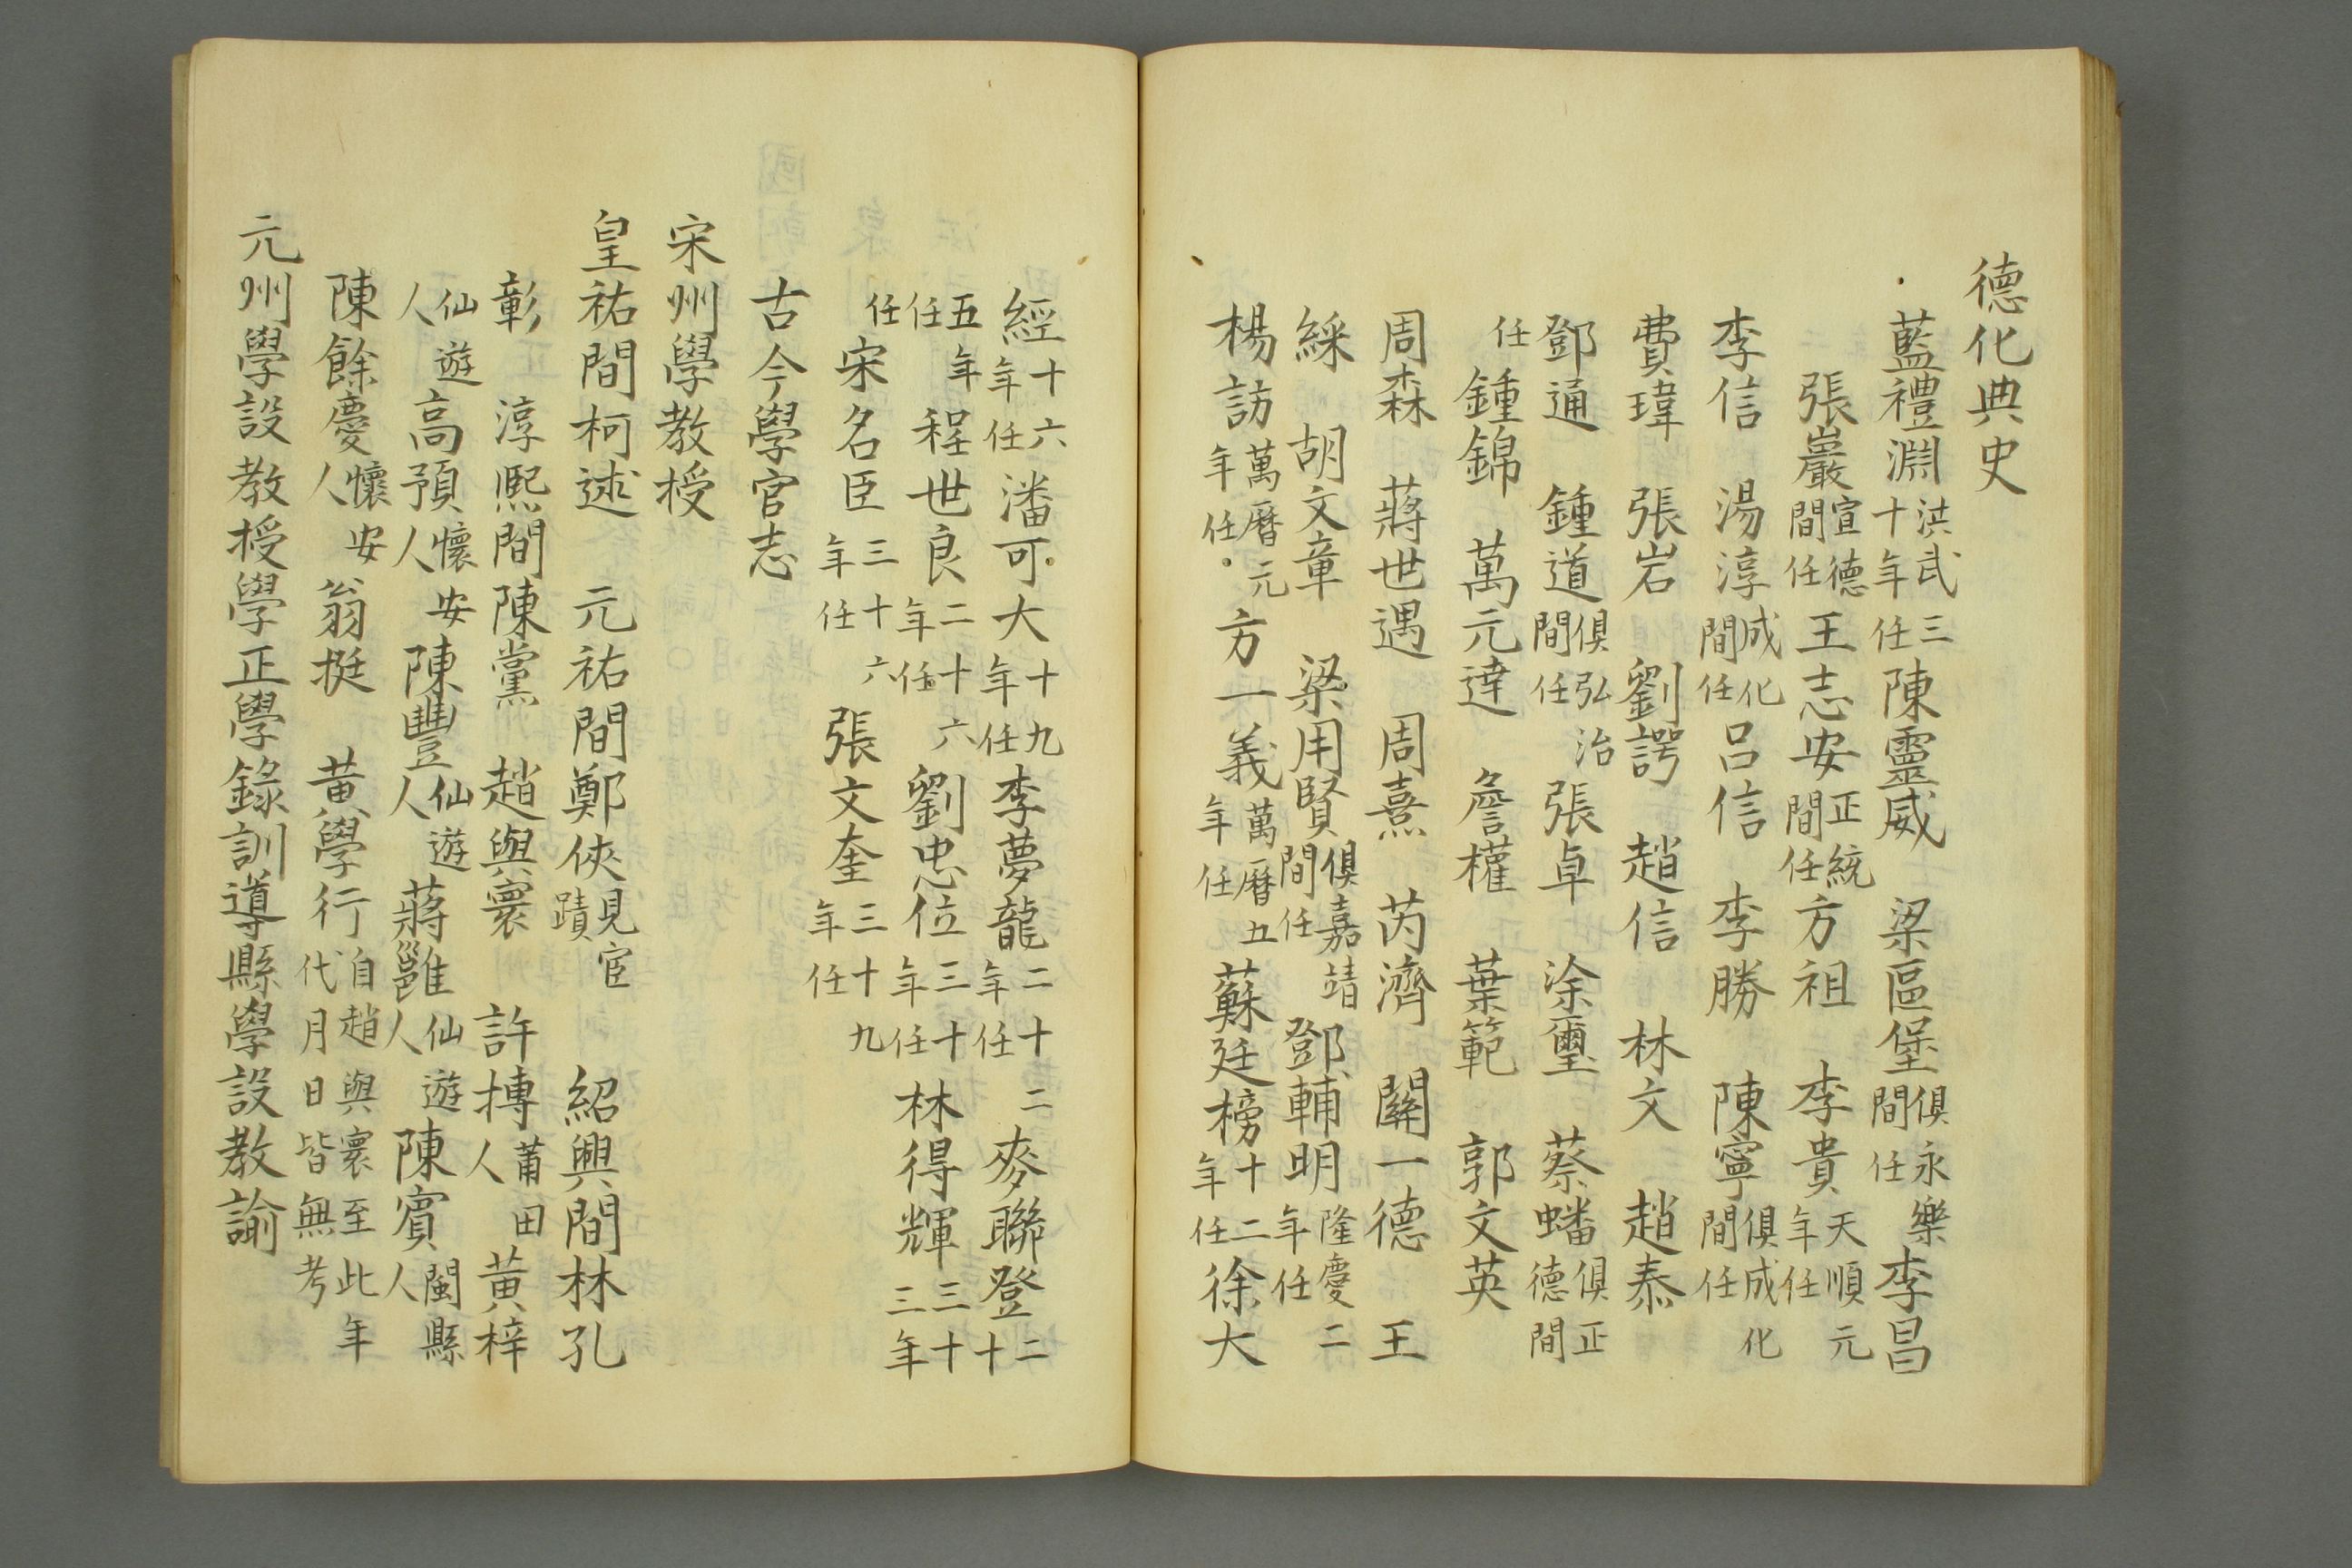 德化典史
藍禮淵洪武三十年任陳靈威 梁區堡俱永樂間任李昌
張巖宣德間任王志安正統間任方祖 李貴天順元年任
李信 湯淳成化間任呂信 李勝 陳寧俱成化間任
費瑋 張岩 劉諤 趙信 林文 趙泰
鄧通 鍾道俱弘治間任張卓 涂璽 蔡蟠俱正德間
任鍾錦 萬元達 詹權 葉範 郭文英
周森 蔣世遇 周熹 芮濟 關一德 王
綵 胡文章 梁用賢俱嘉靖間任鄧輔明隆慶二年任
楊訪萬曆元年任方一義萬曆五年任蘇廷榜十二年任徐大
經十六年任潘可大十九年任李夢龍二十二年任麥聯登二十
五年任程世良二十六年任劉忠位三十年任林得輝三十三年
任宋名臣三十六年任張文奎三十九年任
古今學官志
宋州學教授
皇祐間柯述 元祐間鄭俠見宦蹟 紹興間林孔
彰 淳熙間陳黨 趙與寰 許摶莆田人黃梓
仙遊人高預懷安人陳豐仙遊人蔣雝仙遊人陳賓閩縣人
陳餘慶懷安人翁挺 黃學行自趙與寰至此年代月日皆無考
元州學設教授學正學錄訓導縣學設教諭